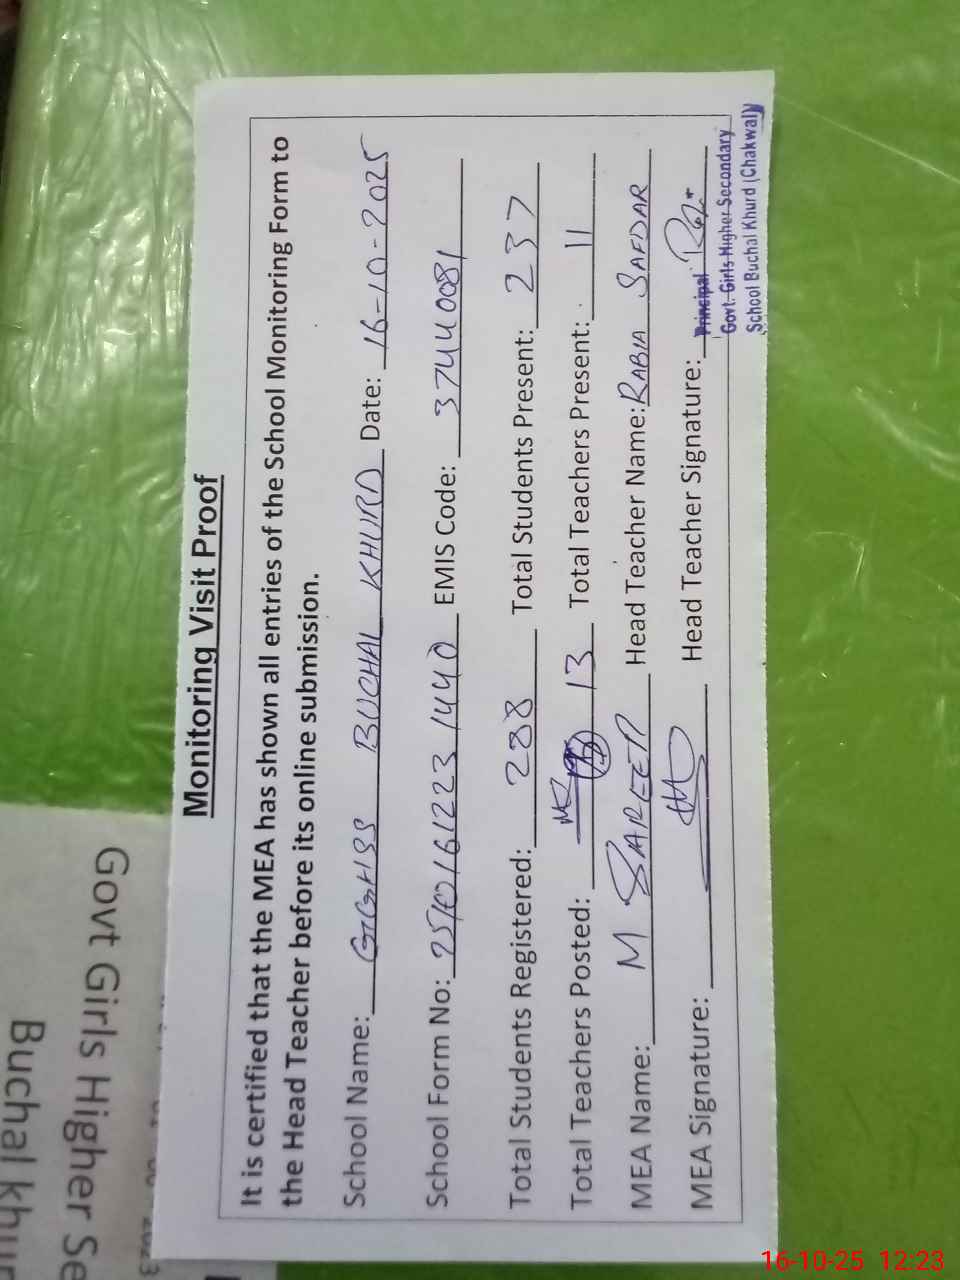 Monitoring Visit Proof
It is certified that the MEA has shown all entries of the School Monitoring Form to
the Head Teacher before its online submission.
School Name: GGHSS BUCHAL KHURD Date: 16-10-2025
School Form No: 25101612231440 EMIS Code: 37440081
Total Students Registered: 288 Total Students Present: 237
Total Teachers Posted: 13 Total Teachers Present: 11
MEA Name: M SAREER Head Teacher Name: RABIA SAFDAR
MEA Signature: Head Teacher Signature:
Principal
Govt. Girls Higher Secondary
School Buchal Khurd (Chakwal)
Govt Girls Higher Se
Buchal khur
16-10-25 12:23